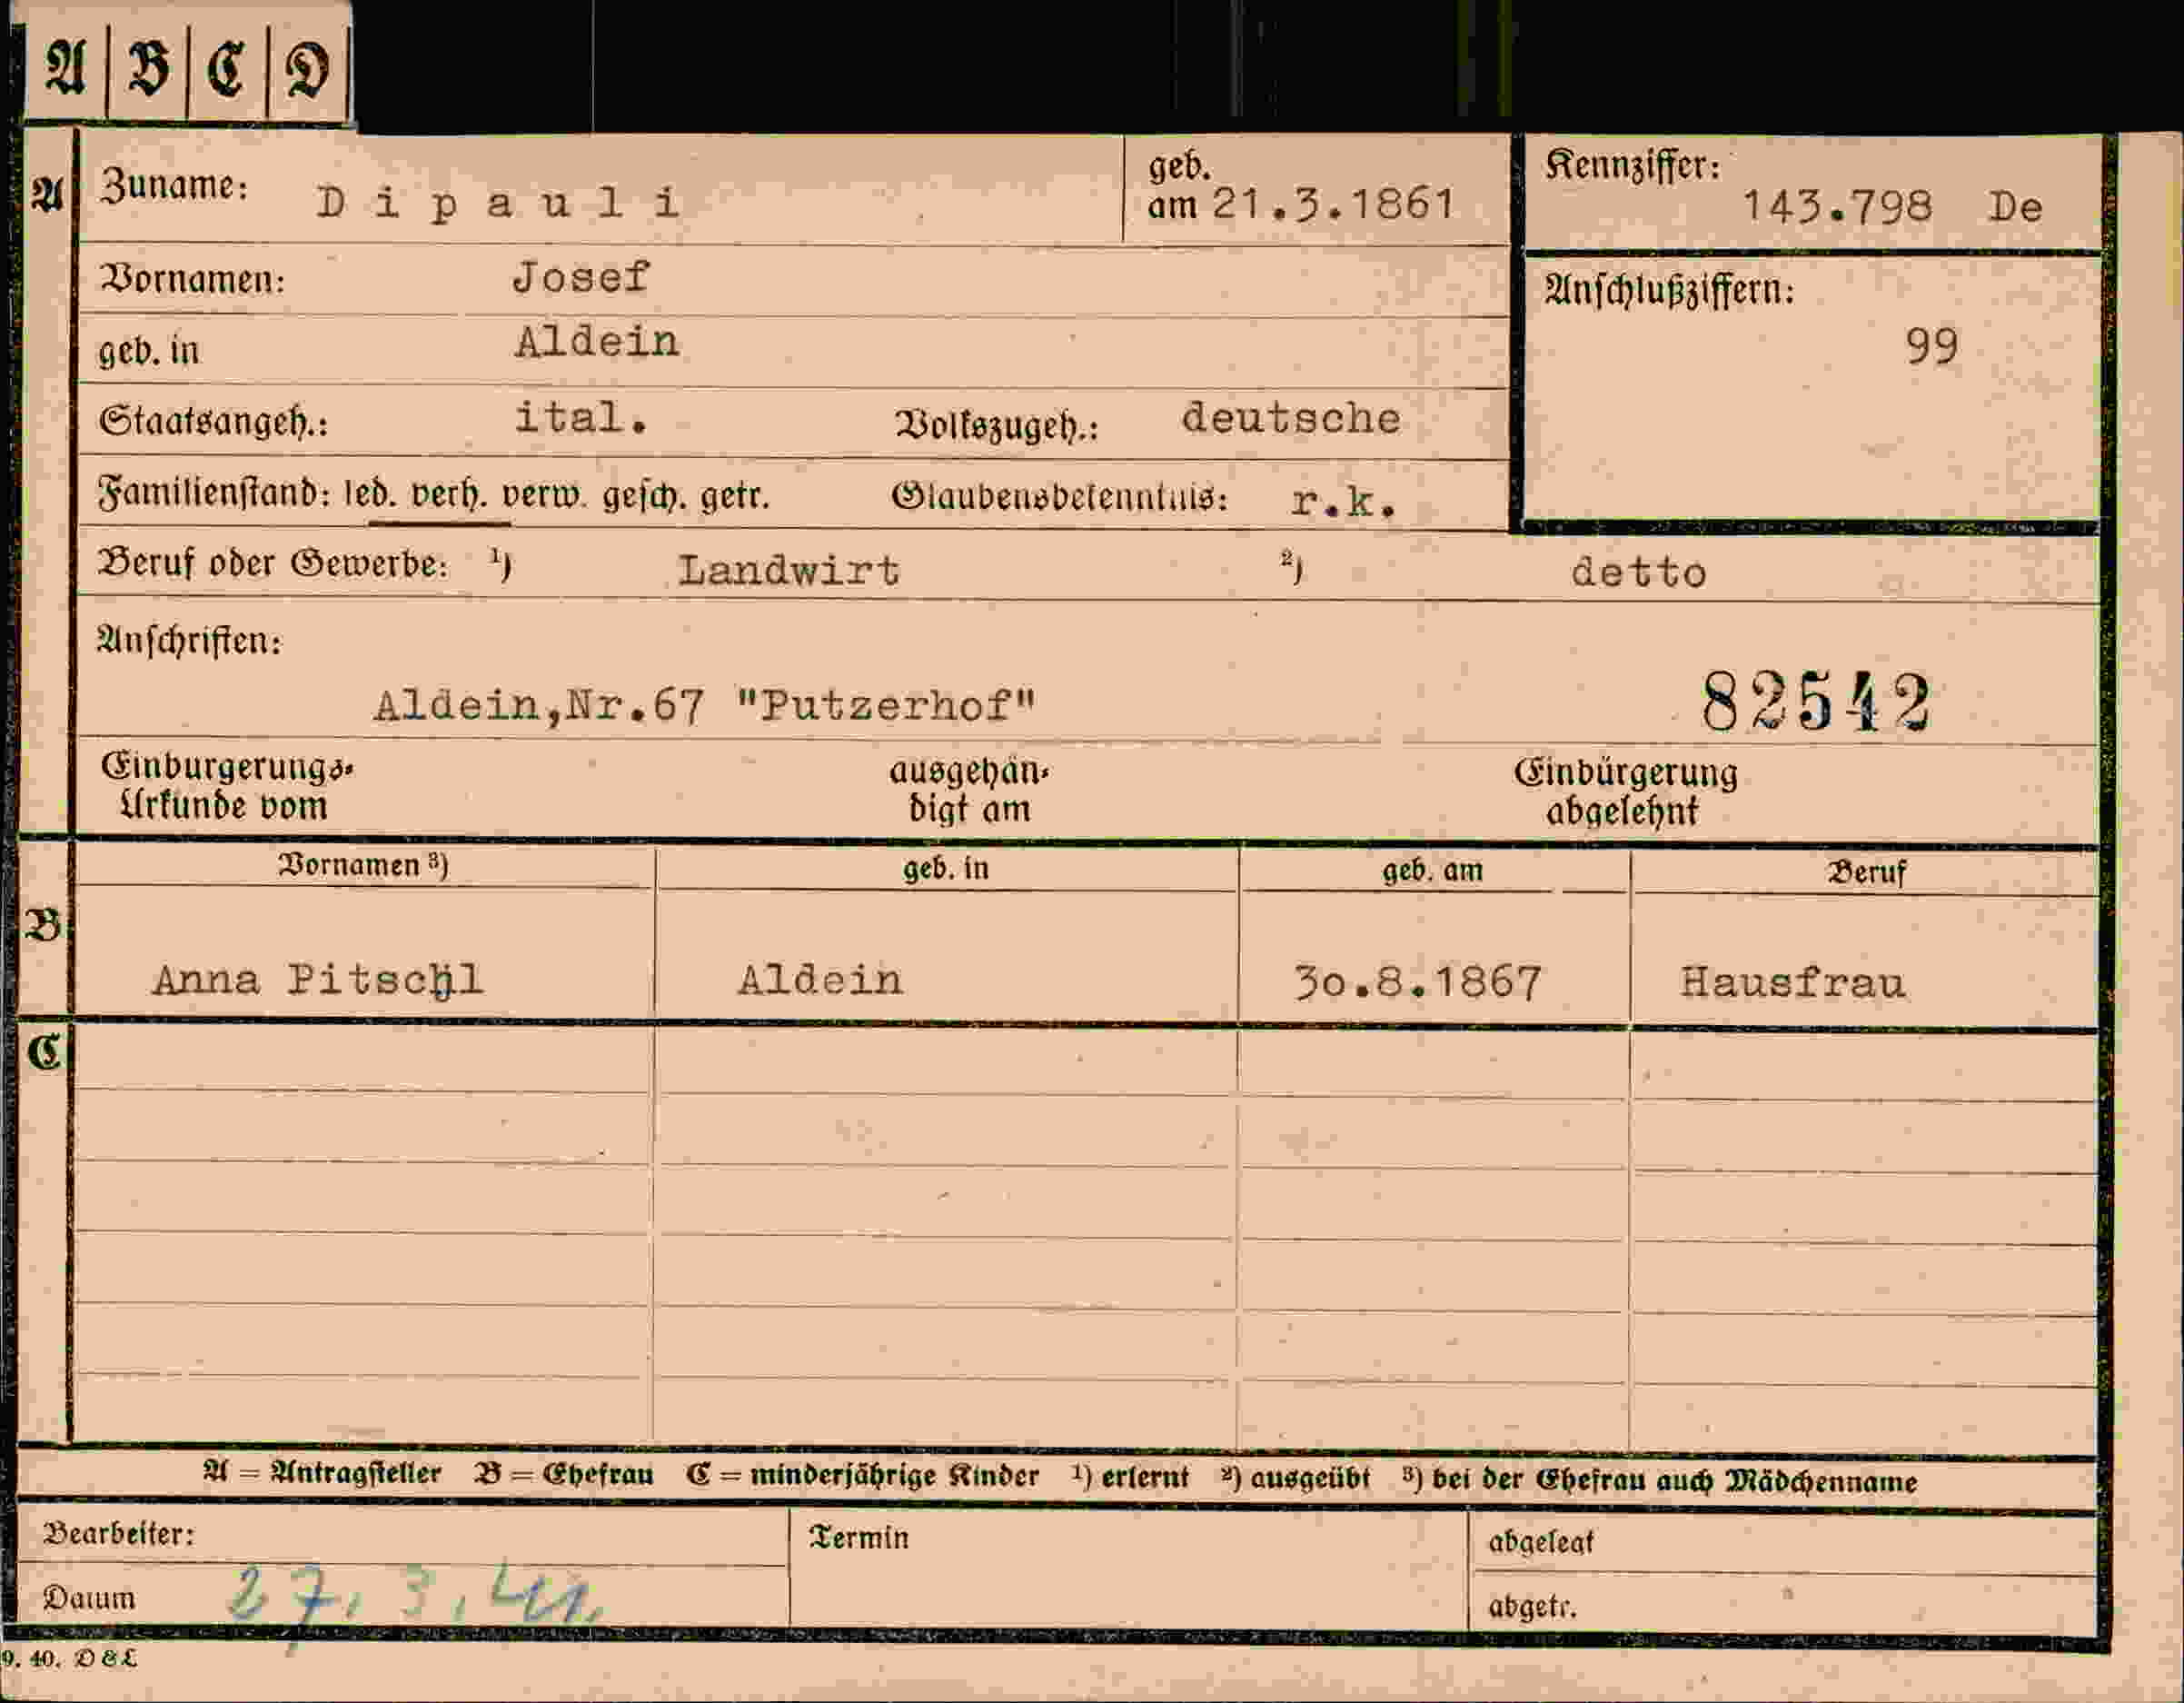 A | B | C | D
A Zuname: Dipauli geb. am 21.3.1861 Kennziffer: 143.798 De
Vornamen: Josef Anschlußziffern:
geb. in Aldein 99
Staatsangeh.: ital. Volkszugeh.: deutsche
Familienstand: led. verh. verw. gesch. getr. Glaubensbekenntnis: r.k.
Beruf oder Gewerbe: 1) Landwirt 2) detto
Anschriften:
Aldein,Nr.67 "Putzerhof" 82542
Einbürgerungs- ausgehän- Einbürgerung
Urkunde vom digt am abgelehnt
Vornamen 3) geb. in geb. am Beruf
B
Anna Pitschl Aldein 30.8.1867 Hausfrau
C
A = Antragsteller B = Ehefrau C = minderjährige Kinder 1) erlernt 2) ausgeübt 3) bei der Ehefrau auch Mädchenname
Bearbeiter: Termin abgelegt
Datum 27.3.41. abgetr.
9. 40. D & L